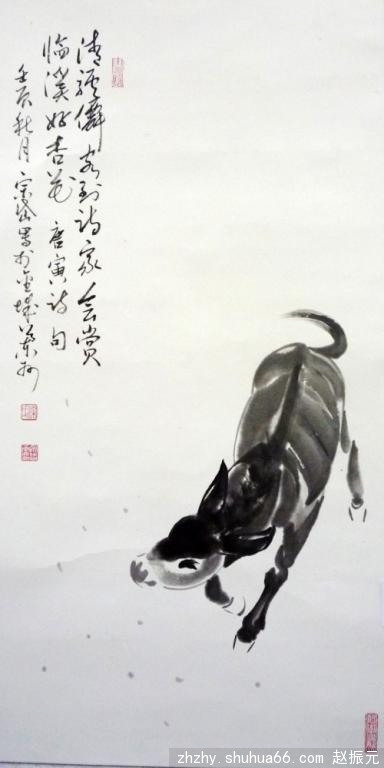 清骊僻客到诗家会赏
临溪好杏花 唐寅诗句
壬辰秋月宗岱写于金城兰州
zhzhy.shuhua66.com 赵振元